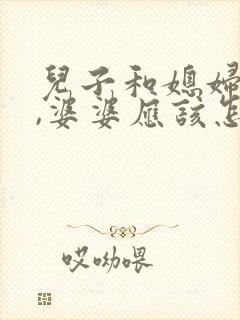 兒子和媳婦
,婆婆應該怎
哎呦喂